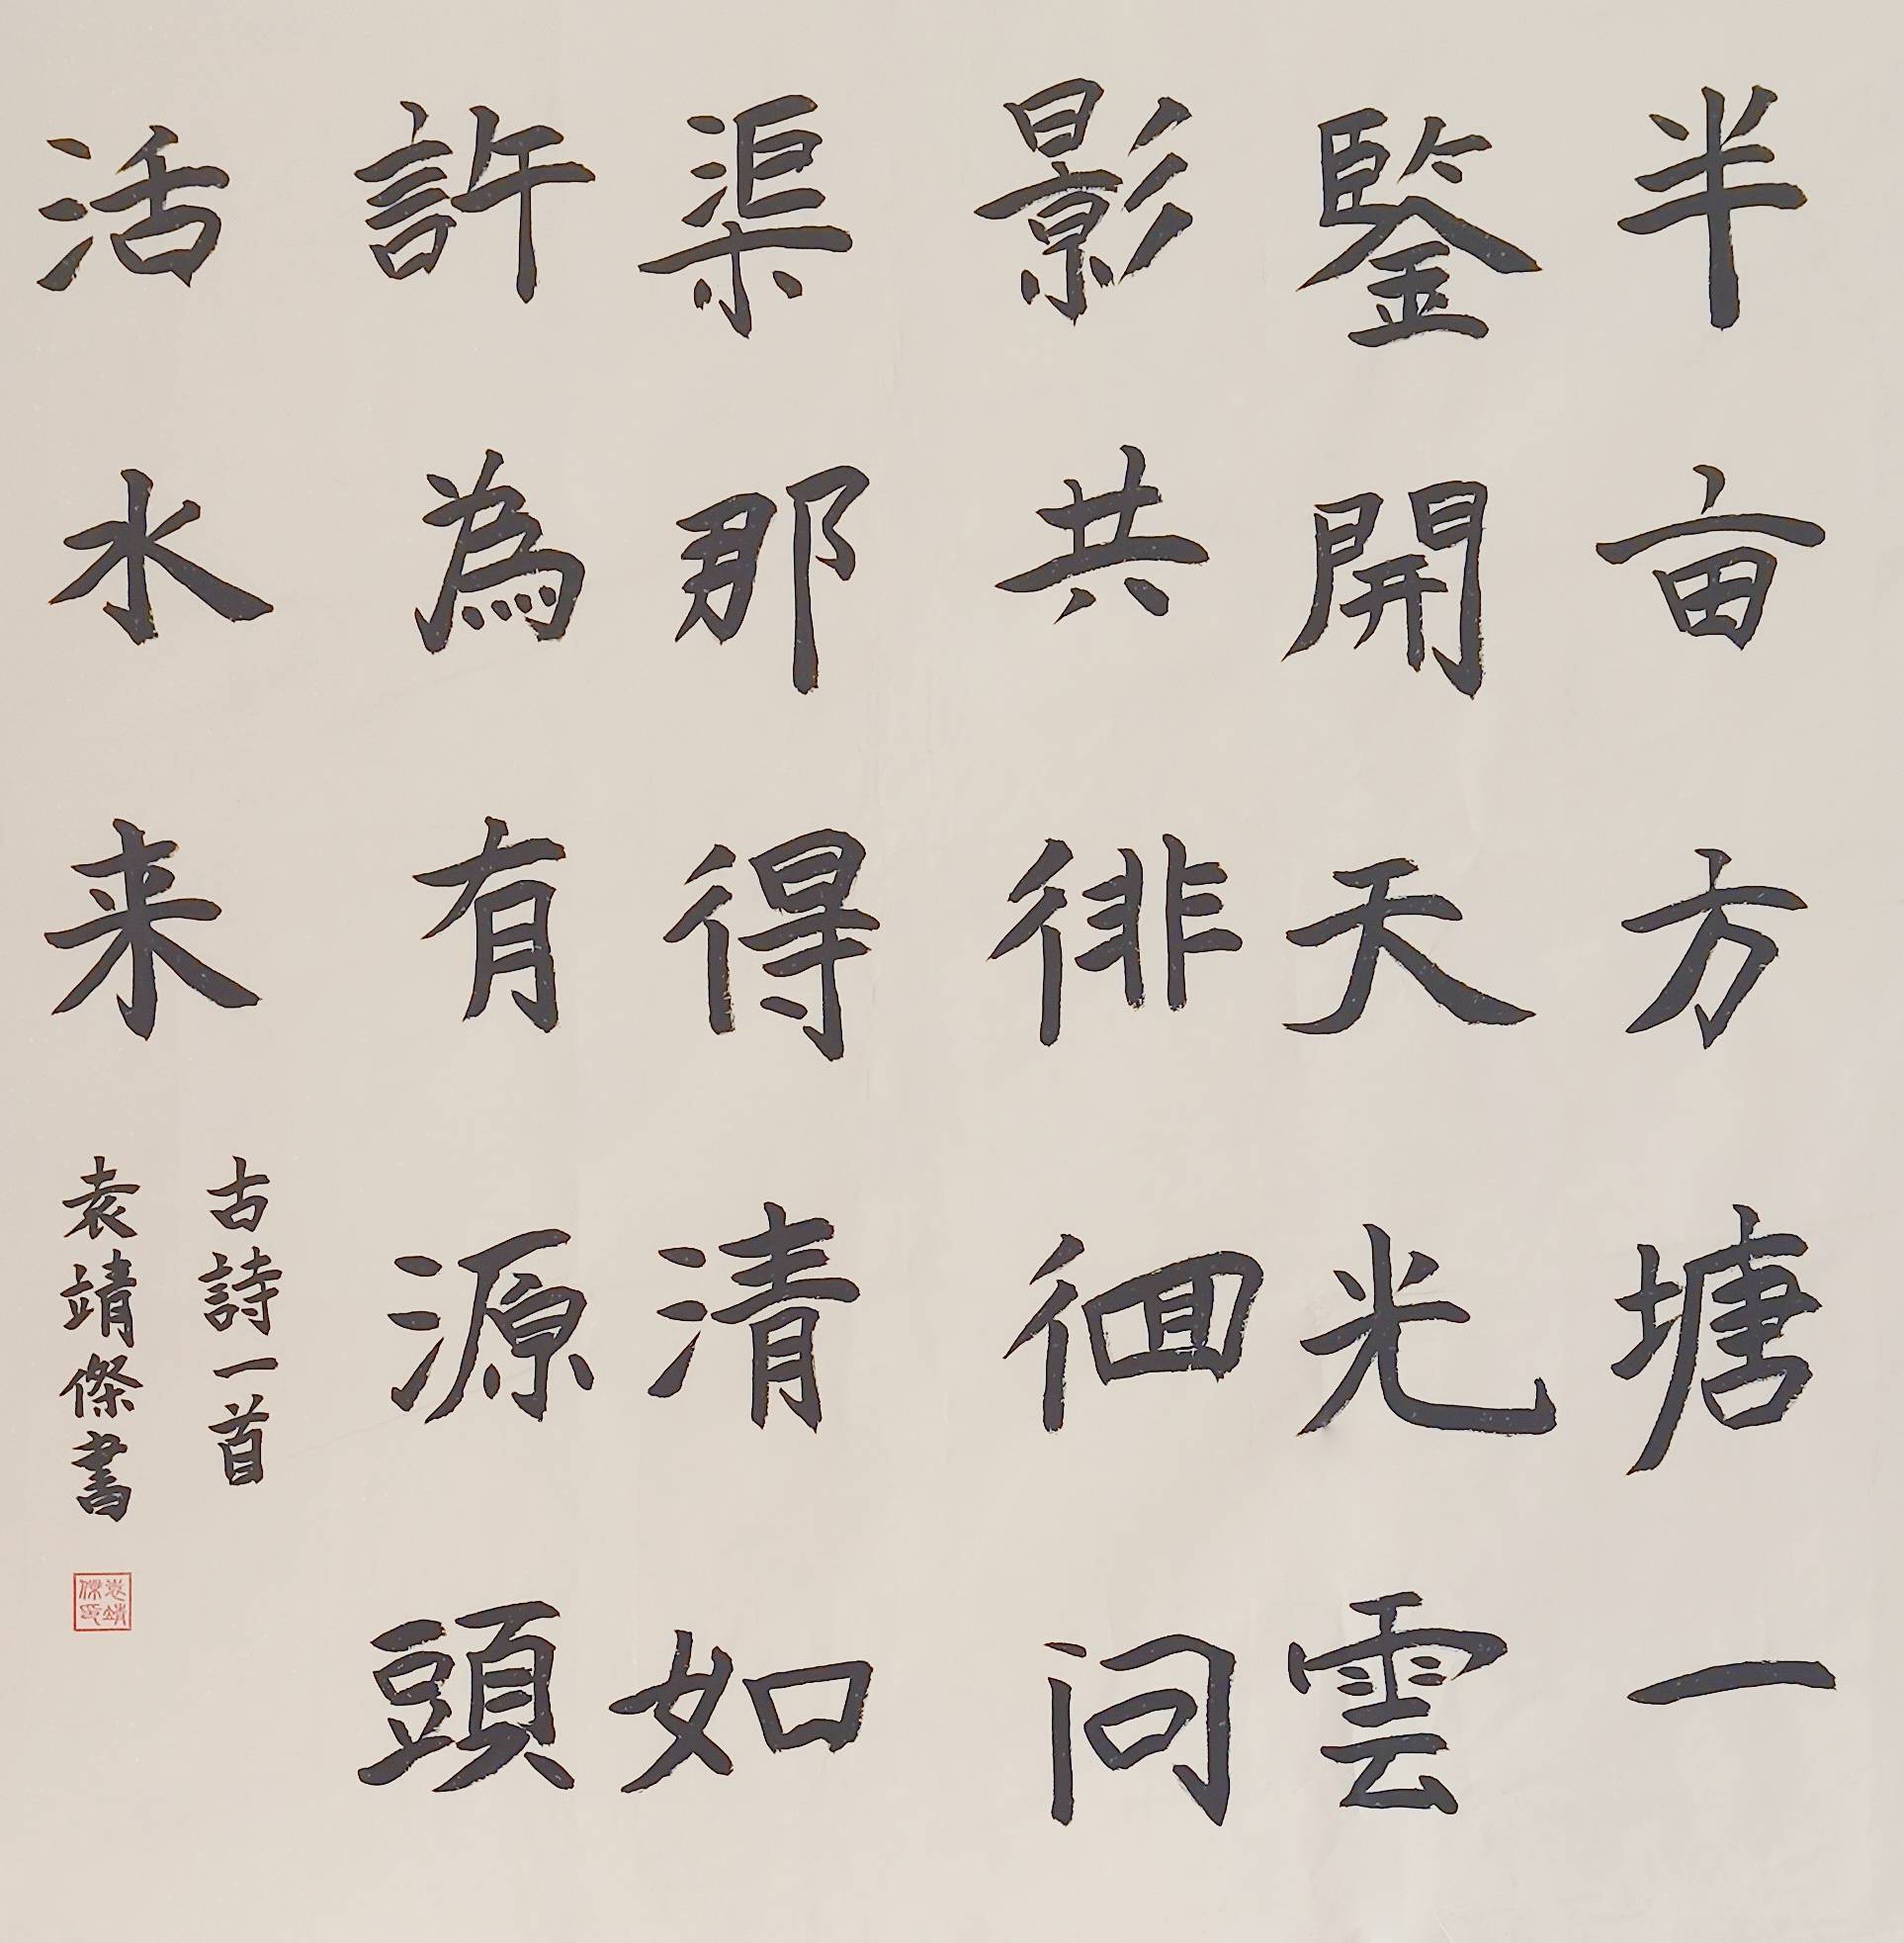 半亩方塘一
鑒開天光雲
影共徘徊问
渠那得清如
許為有源頭
活水来
古詩一首
袁靖傑書
袁靖傑印